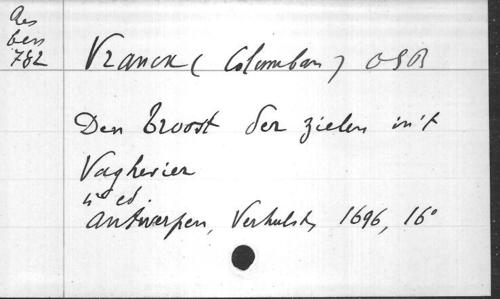 Res
ben
782
Vranck (Columban) OSB
Den troost der zielen in't
Vaghevier
4e ed.
Antwerpen, Verhulst, 1696, 16°